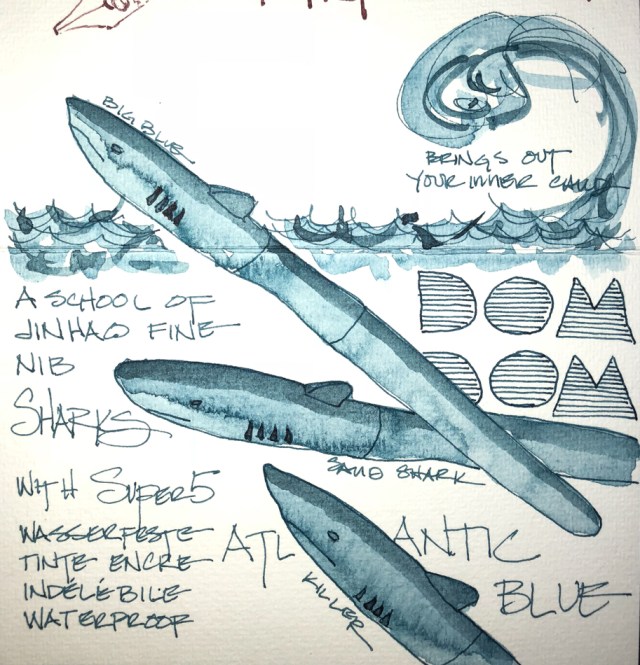 BIG BLUE
BRINGS OUT
YOUR INNER
DOM
DOM
A SCHOOL OF
JINHAO FINE
NIB
SHARKS
SAND SHARK
WITH SUPER5
WASSERFESTE
TINTE ENCRE
INDÉLÉBILE
WATERPROOF
ATLANTIC
BLUE
KILLER